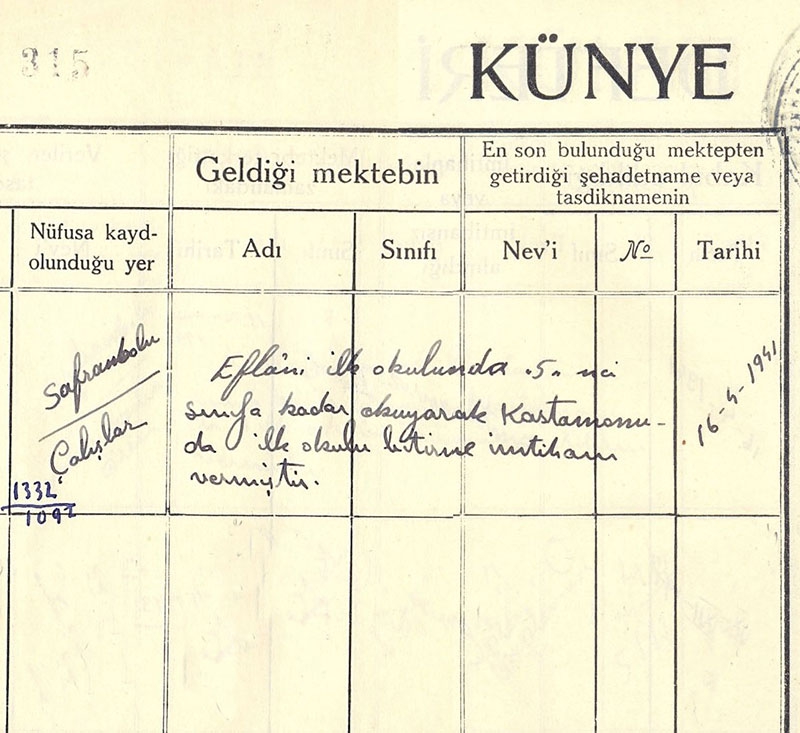 315
KÜNYE
Geldiği mektebin
En son bulunduğu mektepten
getirdiği şehadetname veya
tasdiknamenin
Nüfusa kayd-
olunduğu yer
Adı
Sınıfı
Nev'i
No
Tarihi
Safranbolu
Çalışlar
1332
1092
Eflâni ilk okulunda "5" nci
sınıfa kadar okuyarak Kastamonu-
da ilk okulu bitirme imtihanı
vermiştir.
16-4-1941